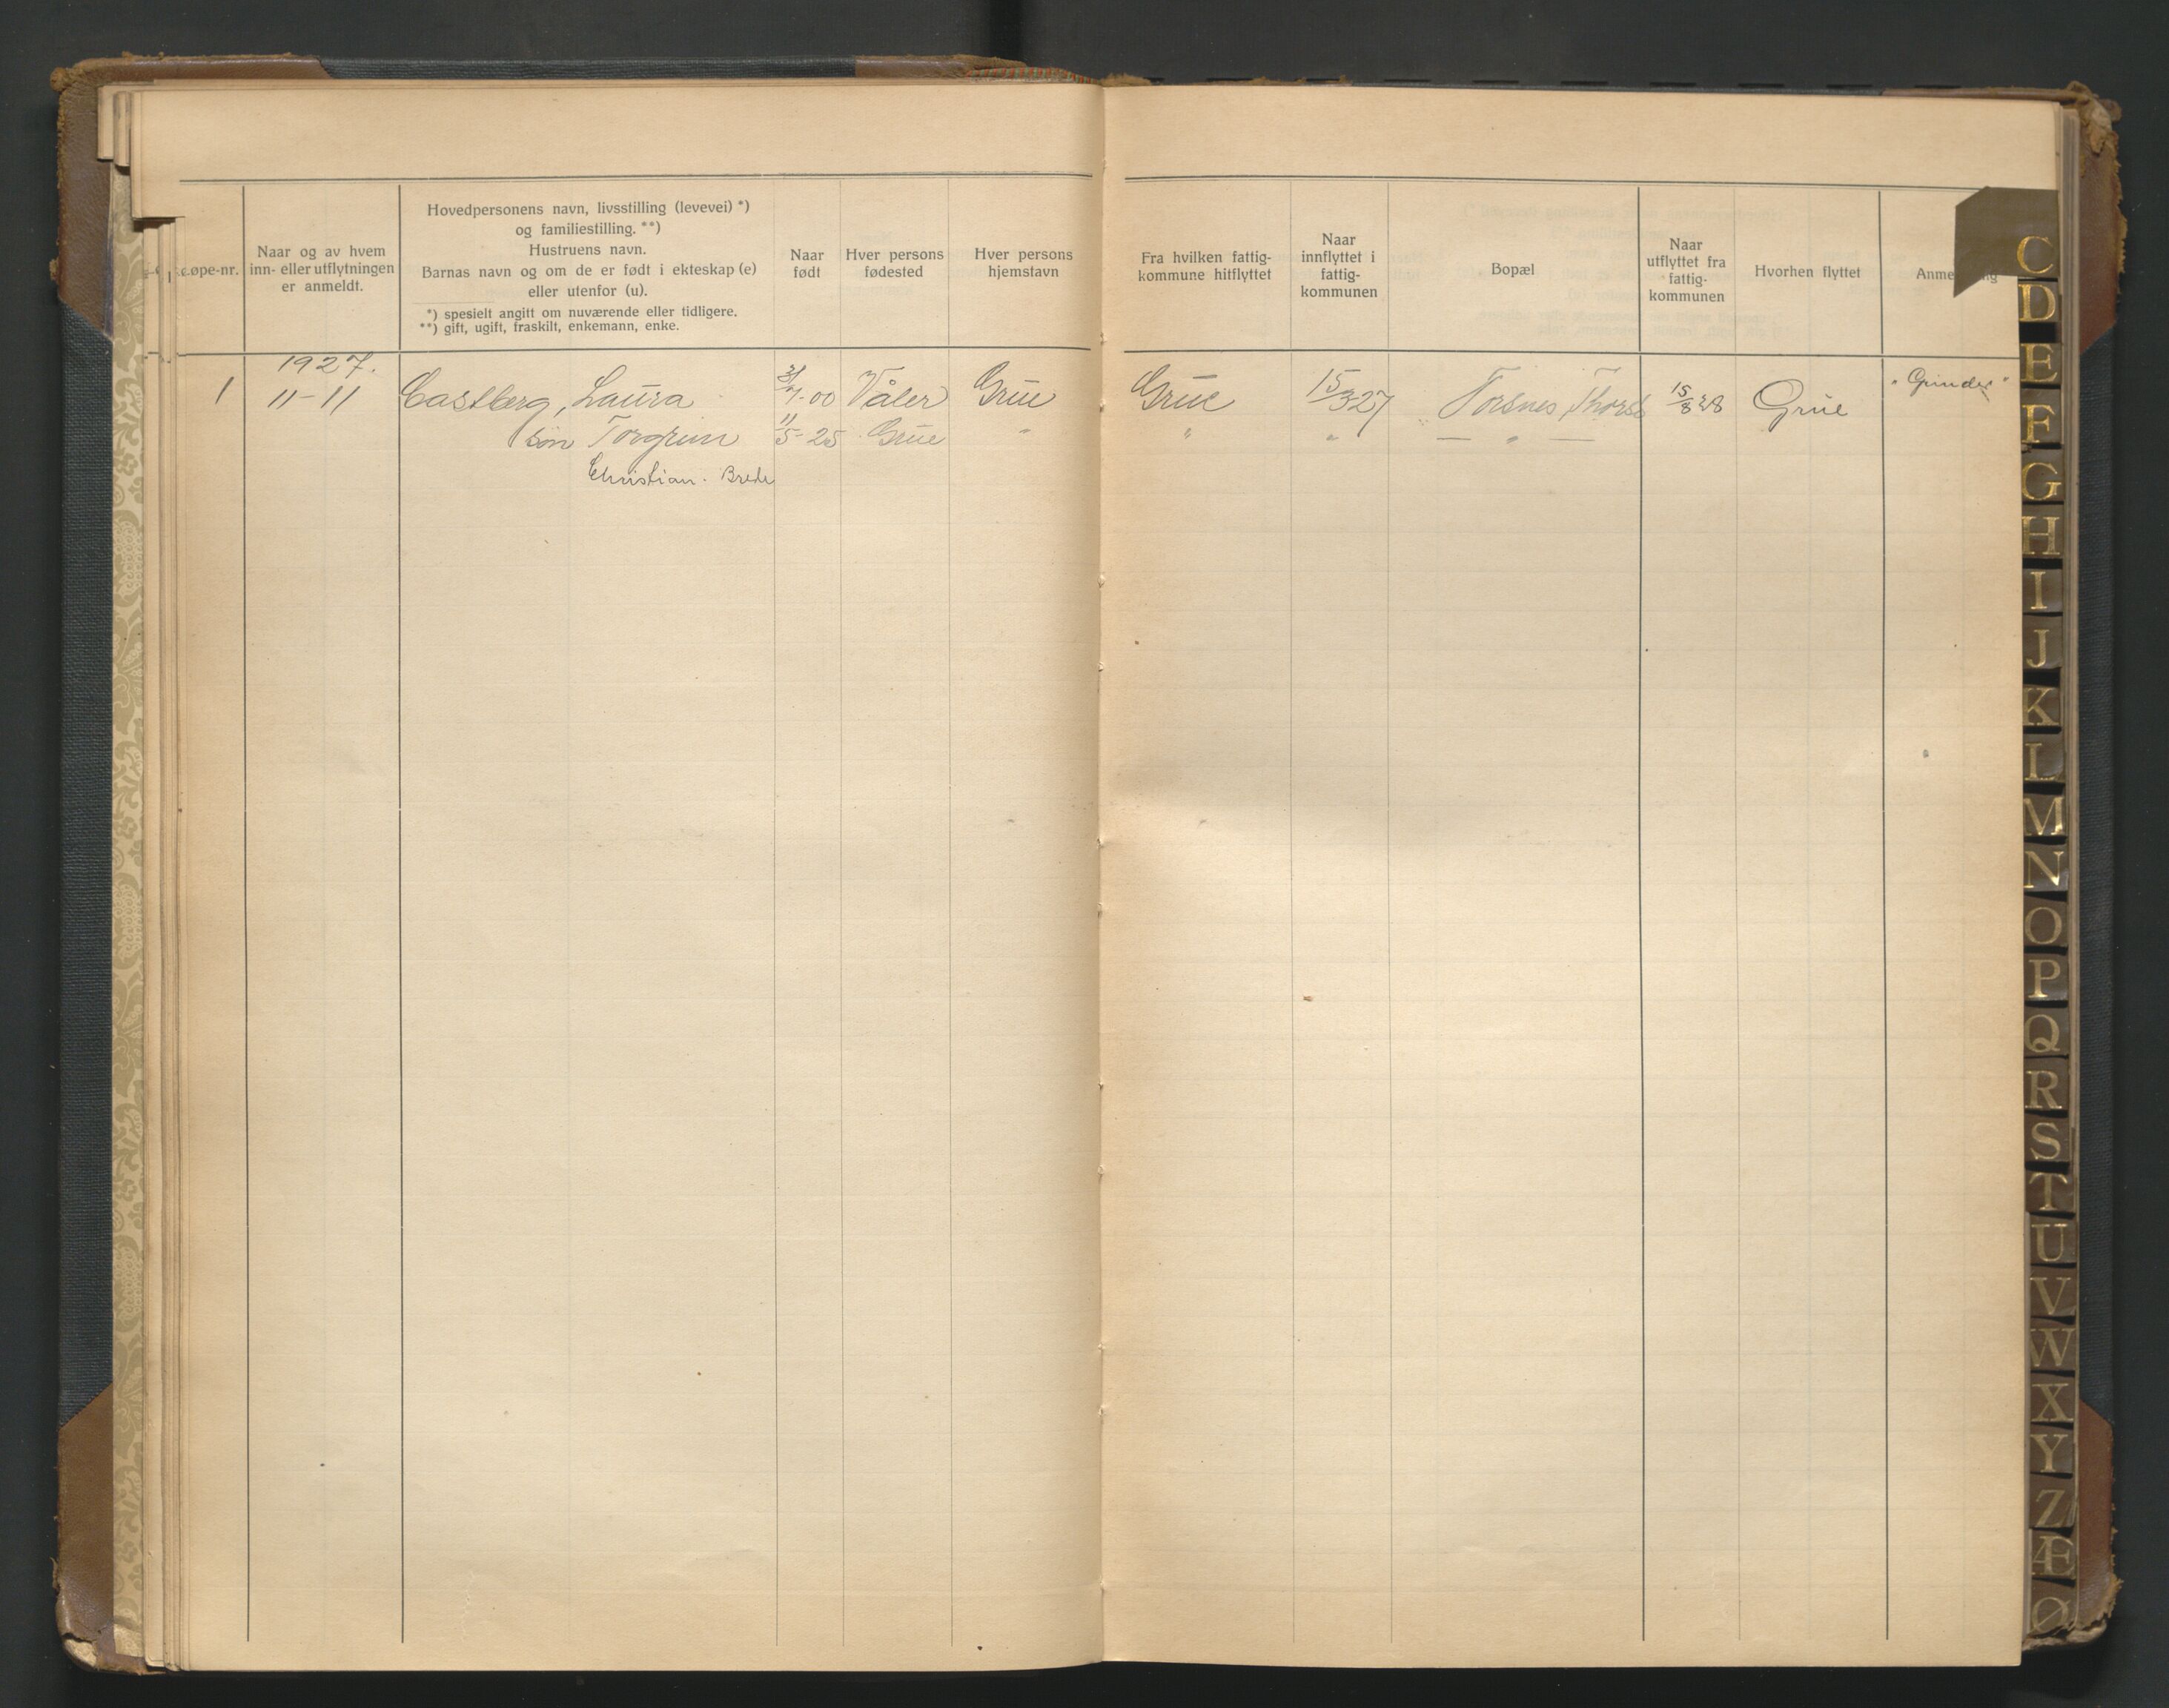 Løpe-nr.
Naar og av hvem
inn- eller utflytningen
er anmeldt.
Hovedpersonens navn, livsstilling (levevei) *)
og familiestilling. **)
Hustruens navn.
Barnas navn og om de er født i ekteskap (e)
eller utenfor (u).
*) spesielt angitt om nuværende eller tidligere.
**) gift, ugift, fraskilt, enkemann, enke.
Naar
født
Hver persons
fødested
Hver persons
hjemstavn
Fra hvilken fattig-
kommune hitflyttet
Naar
innflyttet i
fattig-
kommunen
Bopæl
Naar
utflyttet fra
fattig-
kommunen
Hvorhen flyttet
1927.
1 11-11 Castberg, Laura -00 Våler Grue Grue 15/3 27 Torsnes, 15/8 28 Grue "Grinder"
søn Torgrim 11/5-25 Grue " " " — " —
Christian. Brede
C
D
E
F
G
H
I
J
K
L
M
N
O
P
Q
R
S
T
U
V
W
X
Y
Z
Æ
Ø